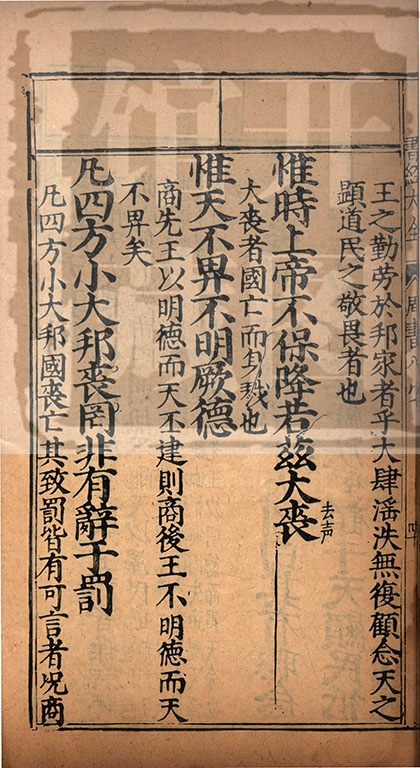 王之勤勞於邦家者乎大肆淫泆無復顧念天之
顯道民之敬畏者也
惟時上帝不保降若茲大喪去声
大喪者國亡而身戮也
惟天不畀不明厥德
商先王以明德而天丕建則商後王不明德而天
不畀矣
凡四方小大邦喪罔非有辭于罰
凡四方小大邦國喪亡其致罰皆有可言者况商